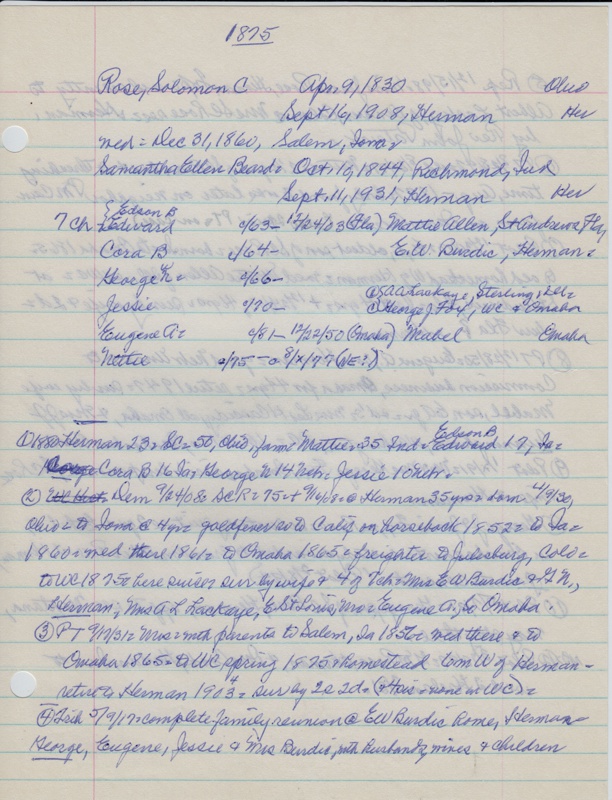 1875
Rose, Solomon C Apr 9, 1830 Ohio
Sept 16, 1908, Herman Her
wed = Dec 31, 1860, Salem, Iowa
Samantha Ellen Beard = Oct. 1844, Richmond, Ind
Sept. 11, 1931, Herman Her
Edson B
7 ch Edward c/63 - 12/24/03 (Fla) Mattie Allen, St Andrews Fla
Cora B c/64 - E.W. Burdic, Herman =
George N = c/66 -
Jessie c/70 - ① A Lackaye, Sterling,
② George J Fox, WC & Omaha
Eugene A = c/81 - 12/22/50 (Omaha) Mabel Omaha
Nettie c/75 - (NE?)
Edson B
① 1880 Herman 23 = SC = 50, Ohio, farm = Mattie = 35 Ind = Edward 17, Ia =
Cora B 16 Ia = George N 14 Neb = Jessie 10 Neb =
② Dem 9/24/08 = SCR = 75 + @ Herman 35 yrs = born 4/9/30,
Ohio = to Iowa @ 4 yr = goldfever so to Calif on horseback 1852 = to Ia =
1860 = wed there 1861 = to Omaha 1865 = freighter to Julesburg, Colo =
to WC 1875 = here since = sur by wife & 4 of 7 ch = Mrs EW Burdic & G N.,
Herman, Mrs A L Lackaye, E St Louis, Mo = Eugene A., So Omaha.
③ PT 9/17/31 = Mrs = with parents to Salem, Ia = wed there & to
Omaha 1865 = to WC spring 1875 = homestead 6 mi W of Herman -
retire to Herman 1903 = sur by 2s 2d = (& Hoie = none in WC) =
④ 5/9/17 = complete family reunion @ EW Burdic home, Herman =
George, Eugene, Jessie & Mrs Burdic, with husbands, wives & children